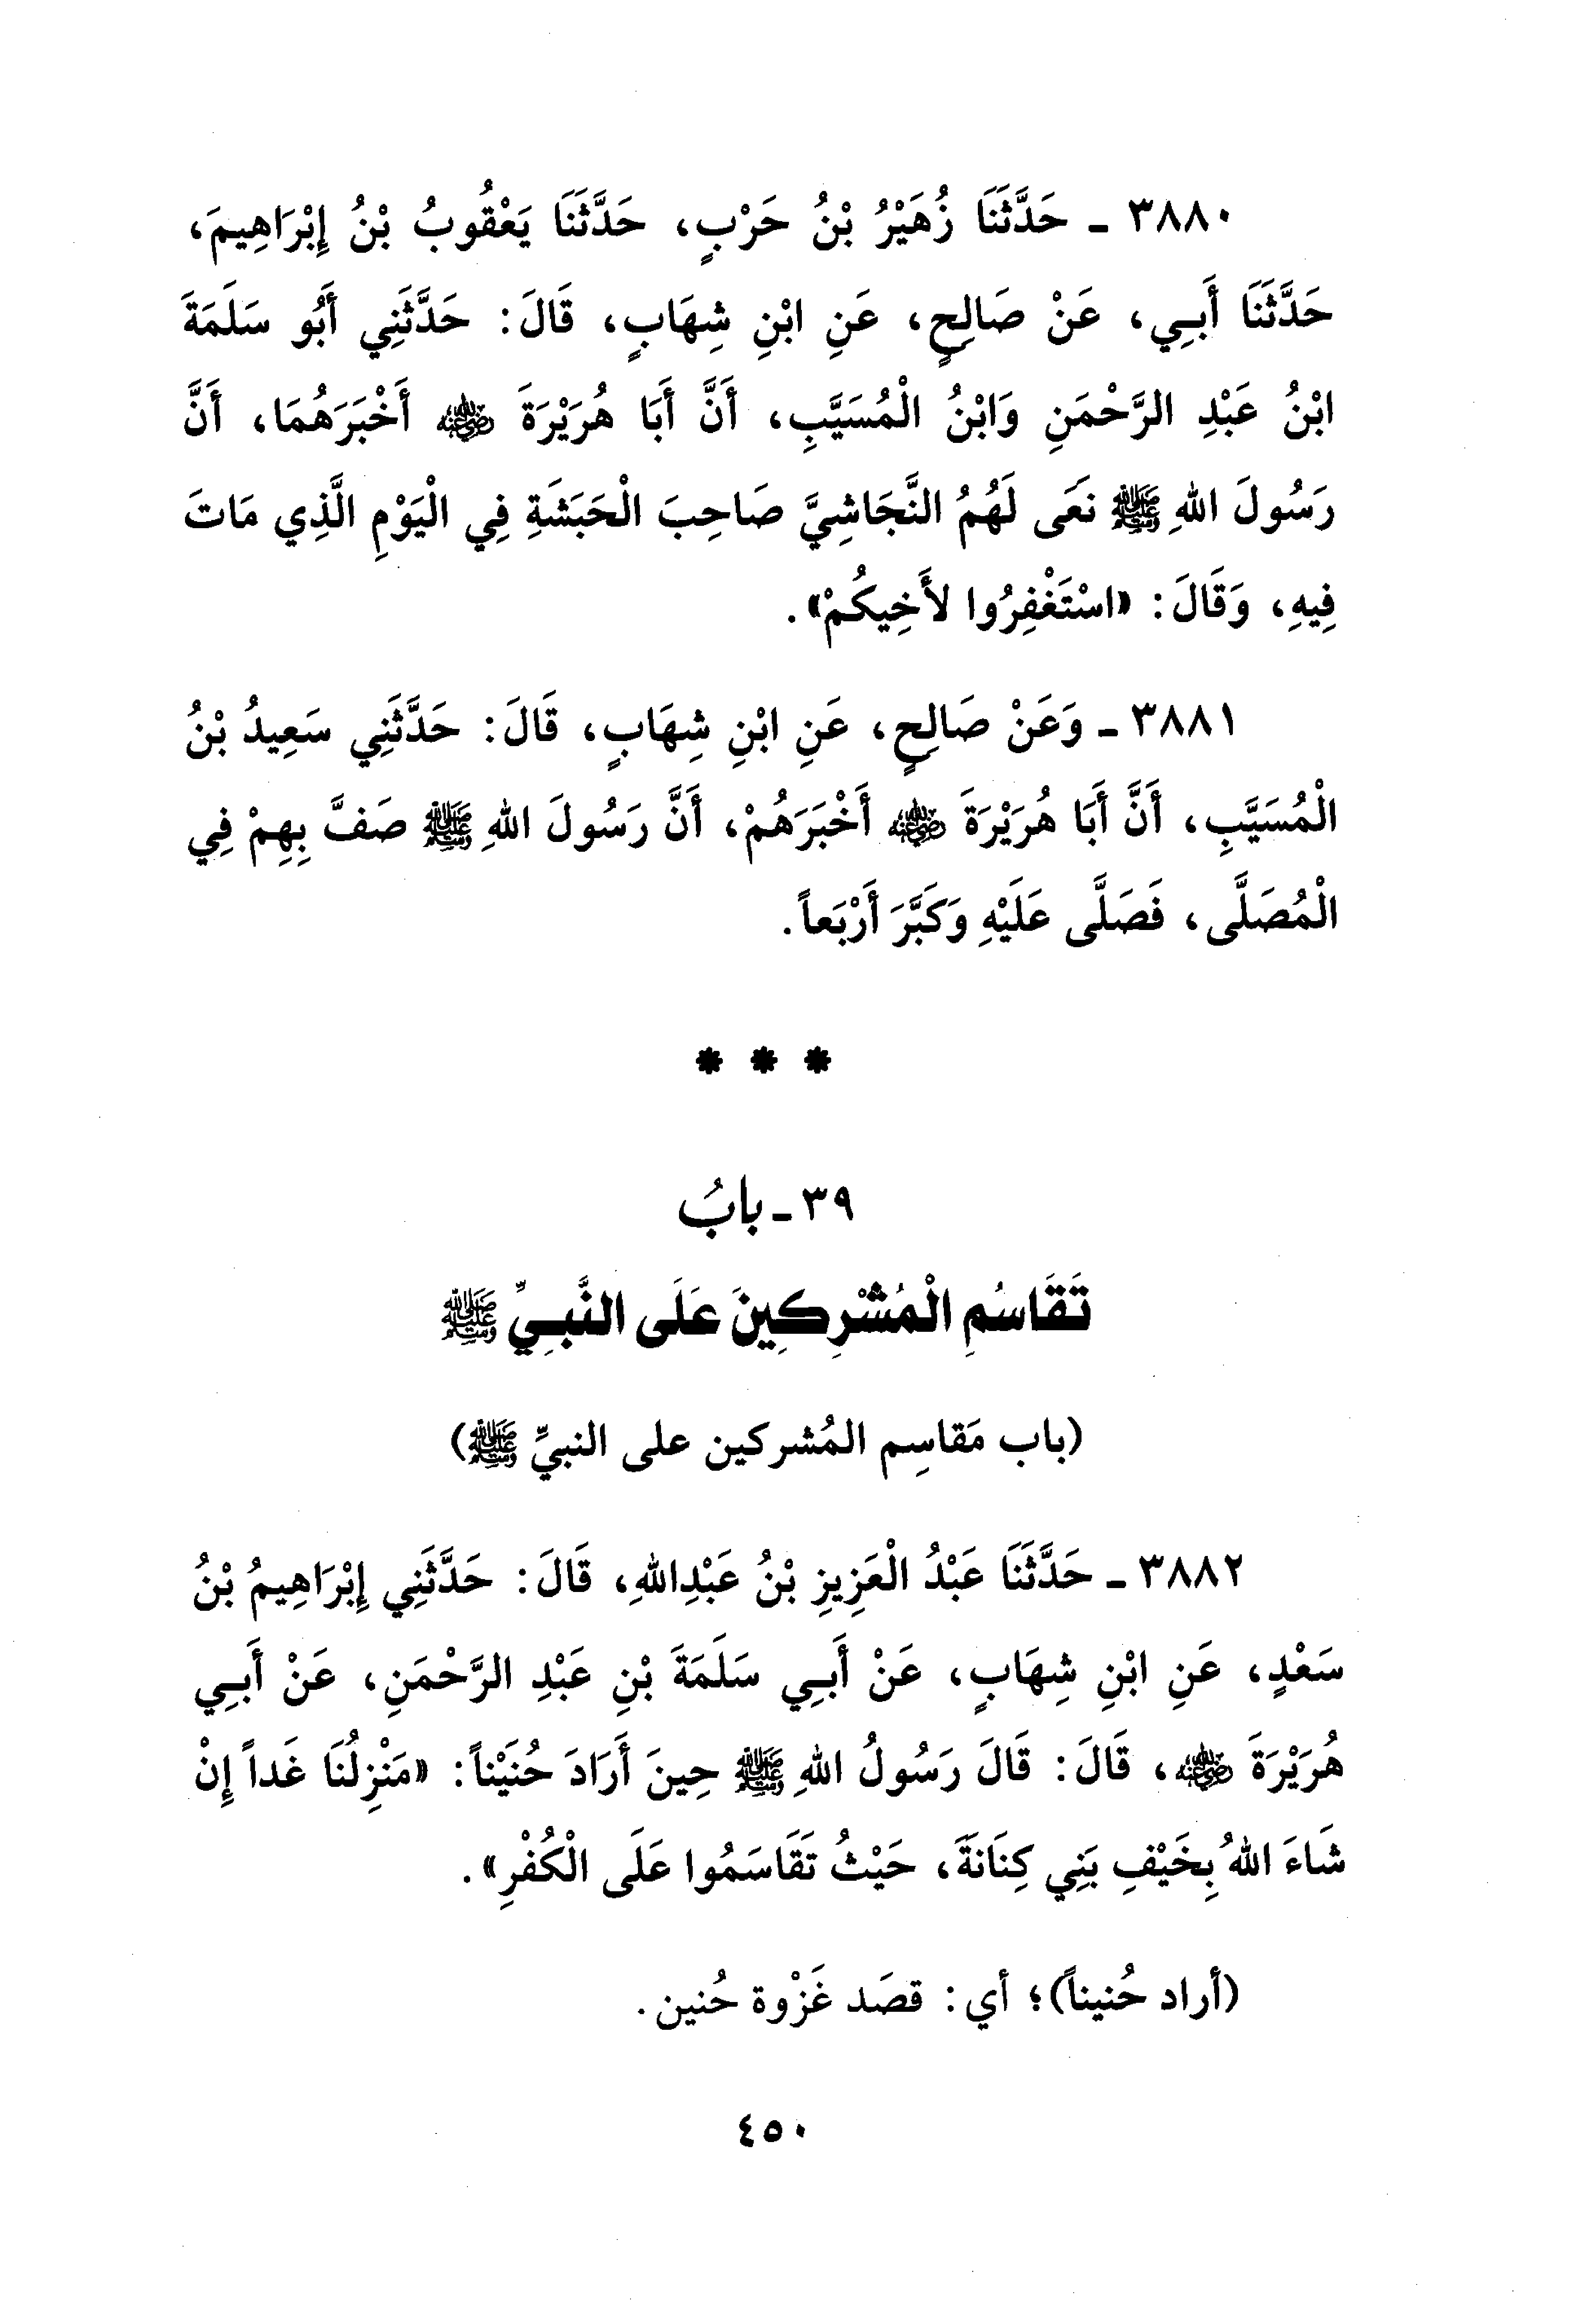 ٣٨٨٠ - حَدَّثَنَا زُهَيْرُ بْنُ حَرْبٍ، حَدَّثَنَا يَعْقُوبُ بْنُ إِبْرَاهِيمَ،
حَدَّثَنَا أَبِي، عَنْ صَالِحٍ، عَنِ ابْنِ شِهَابٍ، قَالَ: حَدَّثَنِي أَبُو سَلَمَةَ
ابْنُ عَبْدِ الرَّحْمَنِ وَابْنُ الْمُسَيَّبِ، أَنَّ أَبَا هُرَيْرَةَ رضي الله عنه أَخْبَرَهُمَا، أَنَّ
رَسُولَ اللهِ ﷺ نَعَى لَهُمُ النَّجَاشِيَّ صَاحِبَ الْحَبَشَةِ فِي الْيَوْمِ الَّذِي مَاتَ
فِيهِ، وَقَالَ: «اسْتَغْفِرُوا لأَخِيكُمْ».
٣٨٨١ - وَعَنْ صَالِحٍ، عَنِ ابْنِ شِهَابٍ، قَالَ: حَدَّثَنِي سَعِيدُ بْنُ
الْمُسَيَّبِ، أَنَّ أَبَا هُرَيْرَةَ رضي الله عنه أَخْبَرَهُمْ، أَنَّ رَسُولَ اللهِ ﷺ صَفَّ بِهِمْ فِي
الْمُصَلَّى، فَصَلَّى عَلَيْهِ وَكَبَّرَ أَرْبَعاً.
* * *
٣٩ - بابُ
تَقَاسُمِ الْمُشْرِكِينَ عَلَى النَّبِيِّ ﷺ
(باب مَقاسِم المُشركين على النبيِّ ﷺ)
٣٨٨٢ - حَدَّثَنَا عَبْدُ الْعَزِيزِ بْنُ عَبْدِاللهِ، قَالَ: حَدَّثَنِي إِبْرَاهِيمُ بْنُ
سَعْدٍ، عَنِ ابْنِ شِهَابٍ، عَنْ أَبِي سَلَمَةَ بْنِ عَبْدِ الرَّحْمَنِ، عَنْ أَبِي
هُرَيْرَةَ رضي الله عنه، قَالَ: قَالَ رَسُولُ اللهِ ﷺ حِينَ أَرَادَ حُنَيْناً: «مَنْزِلُنَا غَداً إِنْ
شَاءَ اللهُ بِخَيْفِ بَنِي كِنَانَةَ، حَيْثُ تَقَاسَمُوا عَلَى الْكُفْرِ».
(أراد حُنيناً)؛ أي: قصَد غَزْوة حُنين.
٤٥٠